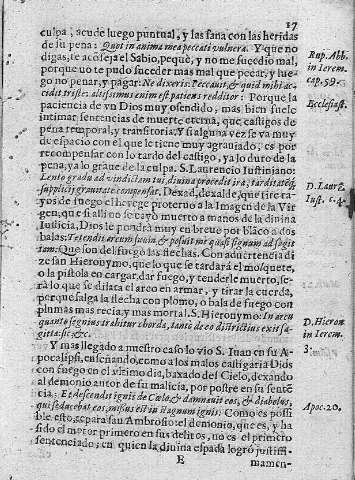 17
culpa, acude luego puntual, y las sana con las heridas
de su pena: Quot in anima mea peccati vulnera. Y que no
digas, te acõseja el Sabio, pequè, y no me sucediò mal,
porque no te pudo suceder mas mal que pecar, y lue-
go no penar, y pagar: Ne dixeris: Peccaui, & quid mihi ac-
cidit triste? altissimus enim est patiens redditor: Porque la
paciencia de vn Dios muy ofendido, mas bien suele
intimar sentencias de muerte eterna, que castigos de
pena temporal, y transitoria: Y si alguna vez se va muy
de espacio con el que le tiene muy agrauiado, es por
recompensar con lo tardo del castigo, ya lo duro de la
pena, ya lo graue de la culpa. S. Laurencio Iustiniano:
Lento gradu ad vindictam sui, diuina procedit ira, tarditatẽq;
supplicij grauitate compensat. Dexad, dexalde, que tire ra-
yos de fuego el herege proteruo a la Imagen de la Vir-
gen, que si alli no se cayò muerto a manos de la diuina
Iusticia, Dios le pondrà muy en breue por blãco a dos
balas: Tetendit arcum suum, & posuit me quasi signum ad sagit
tam: Que son de fuego las flechas. Con aduertencia di-
ze san Hieronymo, que lo que se tardarà el mosquete,
o la pistola en cargar, dar fuego, y tenderle muerto, se-
rà lo que se dilata el arco en armar, y tirar la cuerda,
porque salga la flecha con plomo, o bala de fuego con
plumas mas recia, y mas mortal. S. Hieronymo: In arcu
quanto segnius trahitur chorda, tanto de eo districtius exit sa-
gitta: &c.
Y mas llegado a nuestro caso lo vio S. Iuan en su A-
pocalipsi, enseñando, como a los malos castigaria Dios
con fuego en el vltimo dia, baxado del Cielo, dexando
al demonio autor de su malicia, por postre en su sentẽ
cia: Et descendit ignis de Cœlo, & deuorauit eos, & diabolus,
qui seducebat eos, missus est in stagnum ignis. Como es possi
ble esto, repara san Ambrosio? el demonio, que es, y ha
sido el motor primero en sus delitos, no es el primero
sentenciado; en quien la diuina espada logrò justissi-
E
mamen-
Rup. Abb.
in Ierem.
cap. 59.
Ecclesiast.
D. Laurẽ.
Iust. c. 4.
D. Hieron
in Ierem.
3.
Apoc. 20.